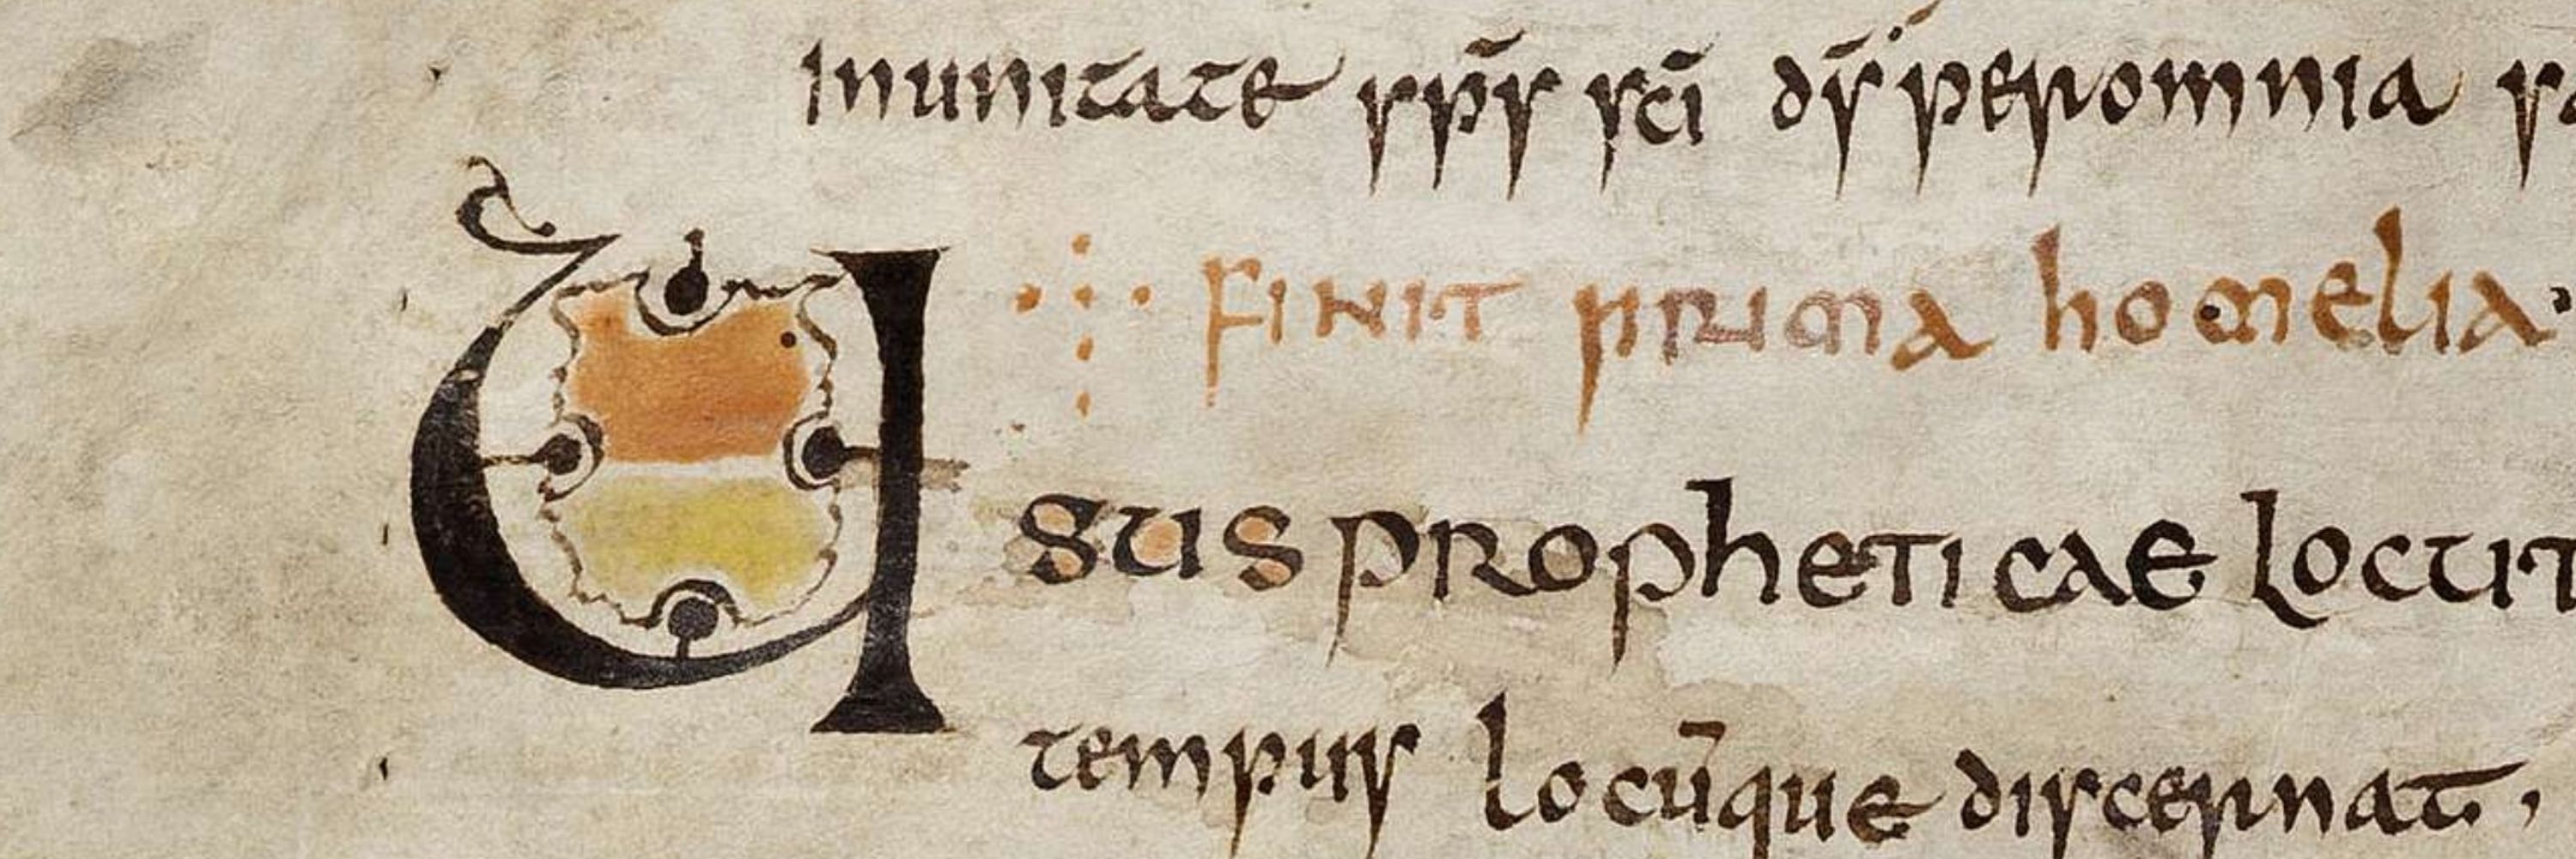 Inunitate sp̄s sc̄i dˉs peromnia
FINIT prima homelia
Usus propheticae locut
tempus locūque discernat,